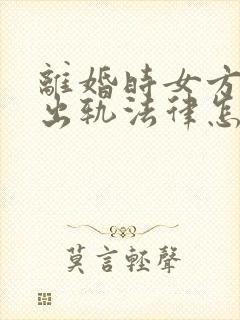 離婚時女方
出軌法律怎
莫言輕聲